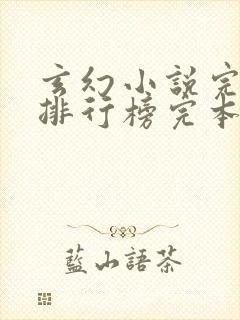 玄幻小說完
排行榜完本
藍山語茶